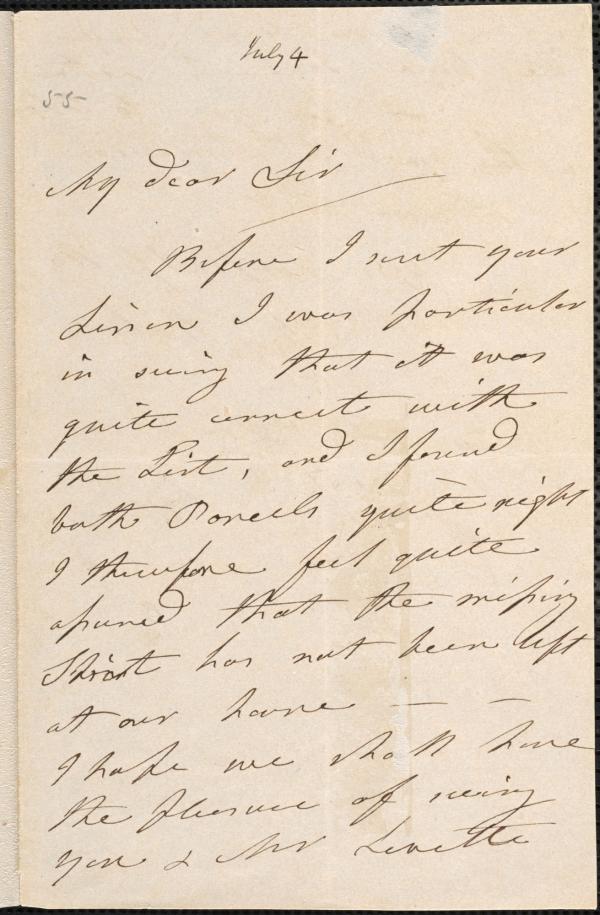 July 4
55
My dear Sir
Before I sent your
Linen I was particular
in seeing that it was
quite correct with
the List, and I found
both Parcels quite right
I therefore feel quite
assured that the missing
Shirt has not been left
at our house — —
I hope we shall have
the pleasure of seeing
you & Mr Levette